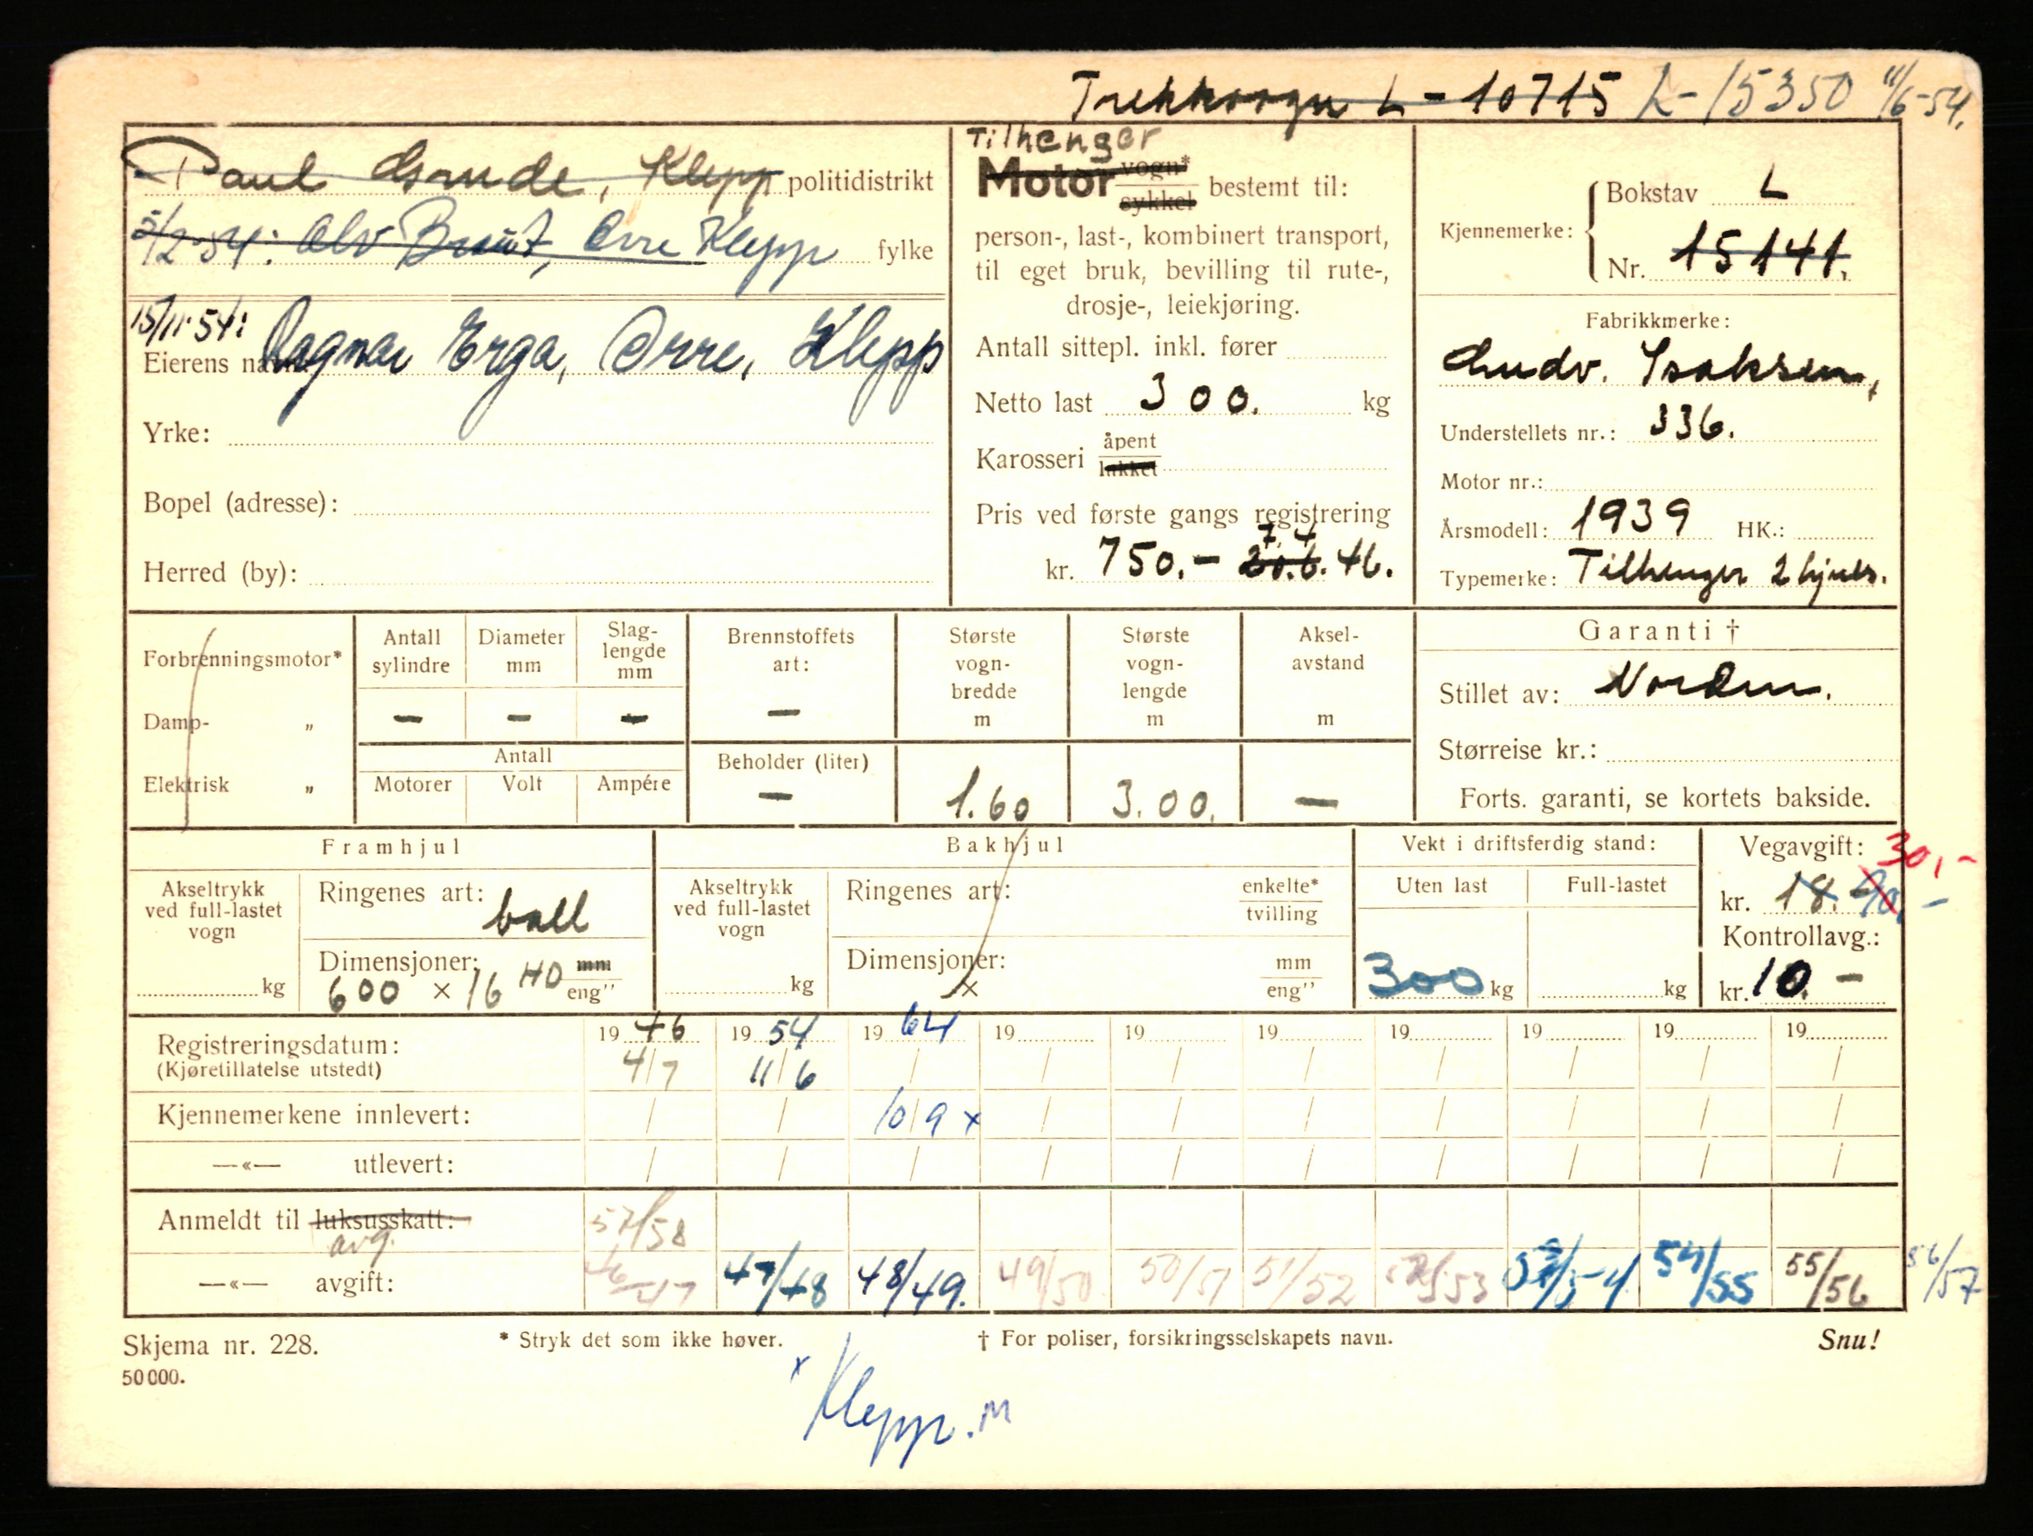 Trekkvogn L-10715 L-15350 11/6-54.
Paul Grude, Klepp politidistrikt
5/2-54: Olv Braut, Orre Klepp fylke
15/11-54:
Eierens navn Ragnar Erga, Orre, Klepp
Yrke:
Bopel (adresse):
Herred (by):
Tilhenger
Motor vogn* sykkel bestemt til:
person-, last-, kombinert transport,
til eget bruk, bevilling til rute-,
drosje-, leiekjøring.
Antall sittepl. inkl. fører
Netto last 300. kg
Karosseri åpent lukket
Pris ved første gangs registrering
7. 4
kr. 750.- 20.6. 46.
Kjennemerke: Bokstav L
Nr. 15141.
Fabrikkmerke:
Gudv. Isaksen,
Understellets nr.: 336.
Motor nr.:
Årsmodell: 1939 HK.:
Typemerke: Tilhenger 2 hjuls.
Forbrenningsmotor*
Damp- „
Elektrisk „
Antall sylindre
Diameter mm
Slaglengde mm
- - -
Antall
Motorer Volt Ampére
Brennstoffets art:
-
Beholder (liter)
-
Største vognbredde m
1.60
Største vognlengde m
3.00.
Akselavstand m
-
Garanti †
Stillet av: Norden.
Størreise kr.:
Forts. garanti, se kortets bakside.
Framhjul
Akseltrykk ved full-lastet vogn
kg
Ringenes art: ball
Dimensjoner: mm
600 × 16 HD eng"
Bakhjul
Akseltrykk ved full-lastet vogn
kg
Ringenes art: enkelte* tvilling
Dimensjoner: mm
× eng"
Vekt i driftsferdig stand:
Uten last Full-lastet
300 kg kg
Vegavgift: 30,-
kr. 18. 90,-
Kontrollavg.:
kr. 10.-
Registreringsdatum: 19 46 19 54 19 64 19 19 19 19 19 19 19
(Kjøretillatelse utstedt) 4/7 11/6 / / / / / / / /
Kjennemerkene innlevert: / / 10/9 x / / / / / / /
—«— utlevert: / / / / / / / / / /
Anmeldt til luksusskatt: 57/58
avg.
—«— avgift: 46-47 47/48 48/49. 49/50 50/51 51/52 52/53 53/54 54/55 55/56 56/57
Skjema nr. 228. * Stryk det som ikke høver. † For poliser, forsikringsselskapets navn. Snu!
50000.
x Klepp. M